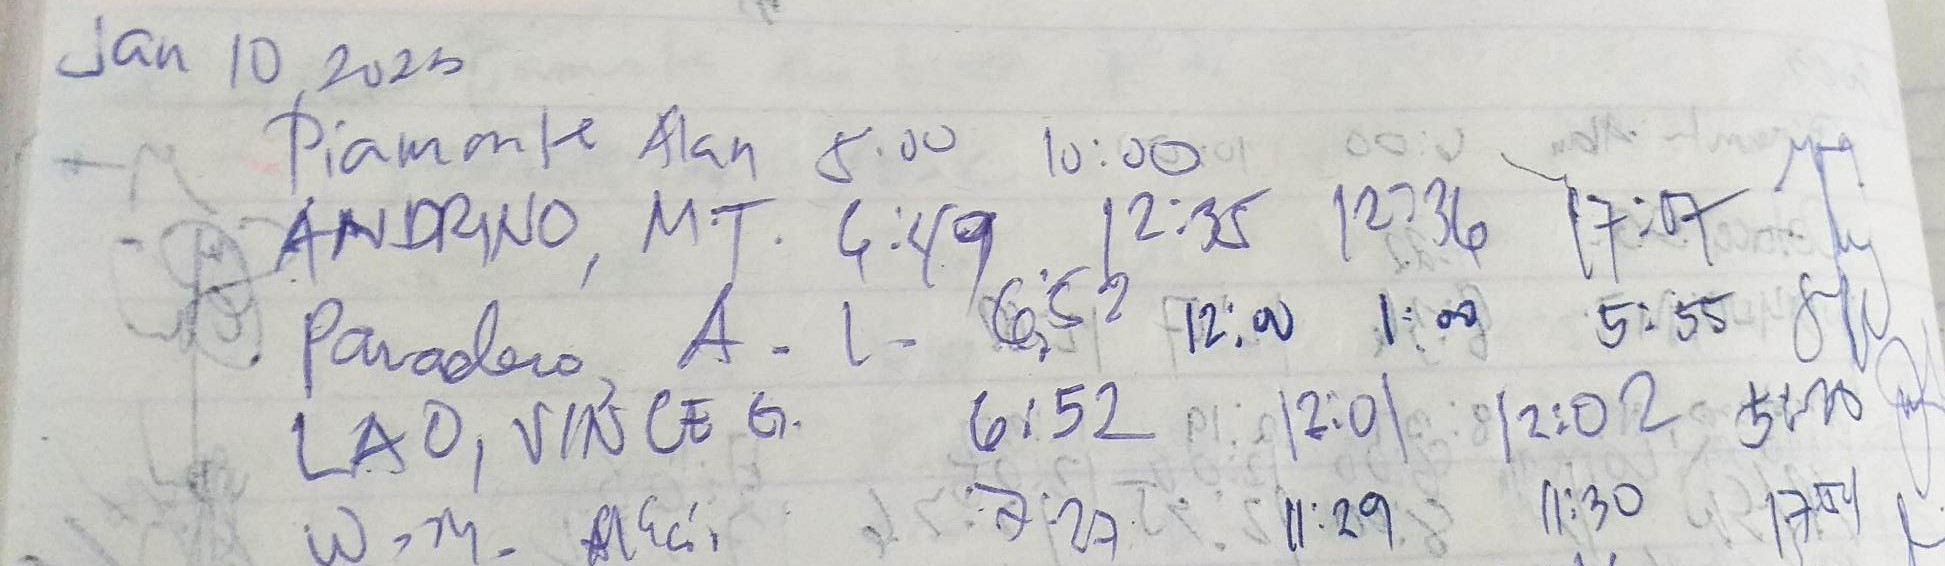 Jan 10, 2025
Piamonte Alan 5:00 10:00
ANDRINO, M.T. 6:49 12:35 12:36 17:07
Paradero, A. L. 6:52 12:00 1:00 5:55
LAO, VINCE G. 6:52 12:01 12:02
W.M. 7:27 11:29 11:30 17:54